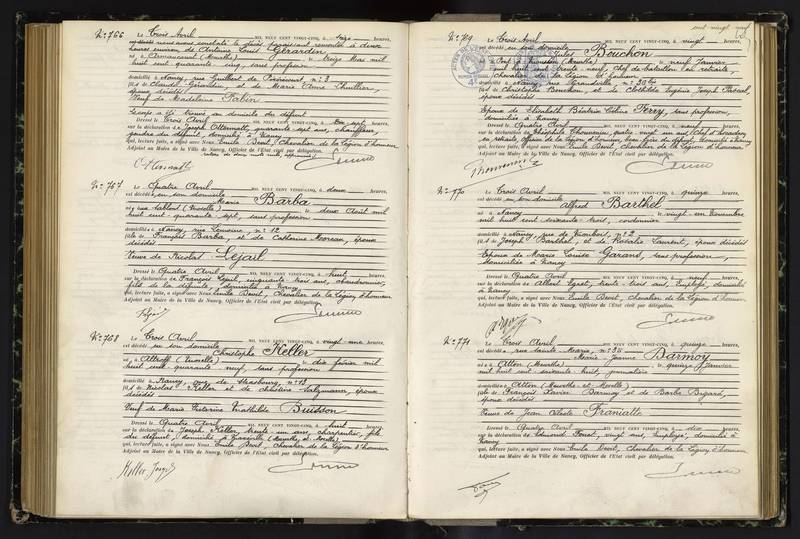 N° 766
Le Trois Avril MIL NEUF CENT VINGT-CINQ, à seize heures,
heures environ de Antoine Louis Gérardin
né à treize Mai mil
huit cent quarante-cinq, sans profession
domicilié à Nancy, rue Guilbert de Pixérécourt, n° 3
fils de Claude Gérardin, et de Marie Anne Thuillier,
époux décédés
Veuf de Madeleine Fabin
Le corps a été trouvé au domicile du défunt
Dressé le Trois Avril MIL NEUF CENT VINGT-CINQ, à dix-sept heures,
sur la déclaration de Joseph quarante-sept ans, chauffeur,
gendre du défunt, domicilié à Nancy
qui, lecture faite, a signé avec Nous Emile Chevalier de la Légion d'honneur
Adjoint au Maire de la Ville de Nancy, Officier de l'Etat civil par délégation.
N° 767
Le Quatre Avril MIL NEUF CENT VINGT-CINQ, à deux heures,
est décédée en son domicile
Marie Barba
née à (Moselle) le deux Août mil
huit cent quarante-sept, sans profession
domiciliée à Nancy, rue n° 12
fille de François Barba, et de Catherine Moreau, époux
décédés
Veuve de Nicolas Lejail
Dressé le Quatre Avril MIL NEUF CENT VINGT-CINQ, à huit heures,
sur la déclaration de François Lejail, cinquante-trois ans, chaudronnier,
fils de la défunte, domicilié à Nancy
qui, lecture faite, a signé avec Nous Emile Chevalier de la Légion d'honneur
Adjoint au Maire de la Ville de Nancy, Officier de l'Etat civil par délégation.
N° 768
Le Trois Avril MIL NEUF CENT VINGT-CINQ, à vingt-une heures,
est décédé en son domicile
Christophe Keller
né à Altroff (Moselle) le dix février mil
huit cent quarante-neuf, sans profession
domicilié à Nancy, rue de Strasbourg, n° 13
fils de Nicolas Keller et de Christine Salzmann, époux
décédés
Veuf de Marie Victorine Mathilde Buisson
Dressé le Quatre Avril MIL NEUF CENT VINGT-CINQ, à huit heures,
sur la déclaration de Joseph Keller, trente-un ans, charpentier, fils
du défunt, domicilié à (Meurthe et Moselle)
qui, lecture faite, a signé avec Nous Emile Chevalier de la Légion d'honneur
Adjoint au Maire de la Ville de Nancy, Officier de l'Etat civil par délégation.
Keller Joseph
cent vingt neuf
N° 769
Le Trois Avril MIL NEUF CENT VINGT-CINQ, à vingt heures,
est décédé en son domicile
Jules Bouchon
né à Pont à Mousson (Meurthe) le neuf Janvier
mil huit cent trente neuf, Chef de bataillon en retraite,
Chevalier de la Légion d'honneur
domicilié à Nancy, rue Grandville, n° 30 bis
fils de Christophe Bouchon, et de Clothilde Eugénie Joseph Pascal,
époux décédés
Epoux de Elisabeth Béatrix Céline Ferry, sans profession,
domiciliée à Nancy
Dressé le Quatre Avril MIL NEUF CENT VINGT-CINQ, à neuf heures,
sur la déclaration de Théophile Thouvenin, quatre vingt un ans, Chef d'escadron
en retraite, Officier de la Légion d'honneur, beau frère du défunt, domicilié à Nancy
qui, lecture faite, a signé avec Nous Emile Chevalier de la Légion d'honneur
Adjoint au Maire de la Ville de Nancy, Officier de l'Etat civil par délégation.
Thouvenin
N° 770
Le Trois Avril MIL NEUF CENT VINGT-CINQ, à quinze heures,
est décédé en son domicile
Alfred Barthel
né à Nancy le vingt-un Novembre
mil huit cent soixante-trois, cordonnier
domicilié à Nancy, rue de n° 2
fils de Joseph Barthel, et de Rosalie Laurent, époux décédés
Epoux de Marie Louise Garand, sans profession,
domiciliée à Nancy
Dressé le Quatre Avril MIL NEUF CENT VINGT-CINQ, à neuf heures,
sur la déclaration de Albert trente-trois ans, Employé, domicilié
à Nancy
qui, lecture faite, a signé avec Nous Emile Chevalier de la Légion d'honneur
Adjoint au Maire de la Ville de Nancy, Officier de l'Etat civil par délégation.
N° 771
Le Trois Avril MIL NEUF CENT VINGT-CINQ, à quinze heures,
est décédée rue Sainte Marie, n° 36
Marie Jeanne Barmoy
née à Atton (Meurthe) le quinze Janvier
mil huit cent soixante-huit, journalière
domiciliée à Atton (Meurthe et Moselle)
fille de François Xavier Barmoy et de Barbe Bigard,
époux décédés
Veuve de Jean Franiatte
Dressé le Quatre Avril MIL NEUF CENT VINGT-CINQ, à dix heures,
sur la déclaration de Edmond vingt ans, Employé, domicilié à
Nancy
qui, lecture faite, a signé avec Nous Emile Chevalier de la Légion d'honneur
Adjoint au Maire de la Ville de Nancy, Officier de l'Etat civil par délégation.